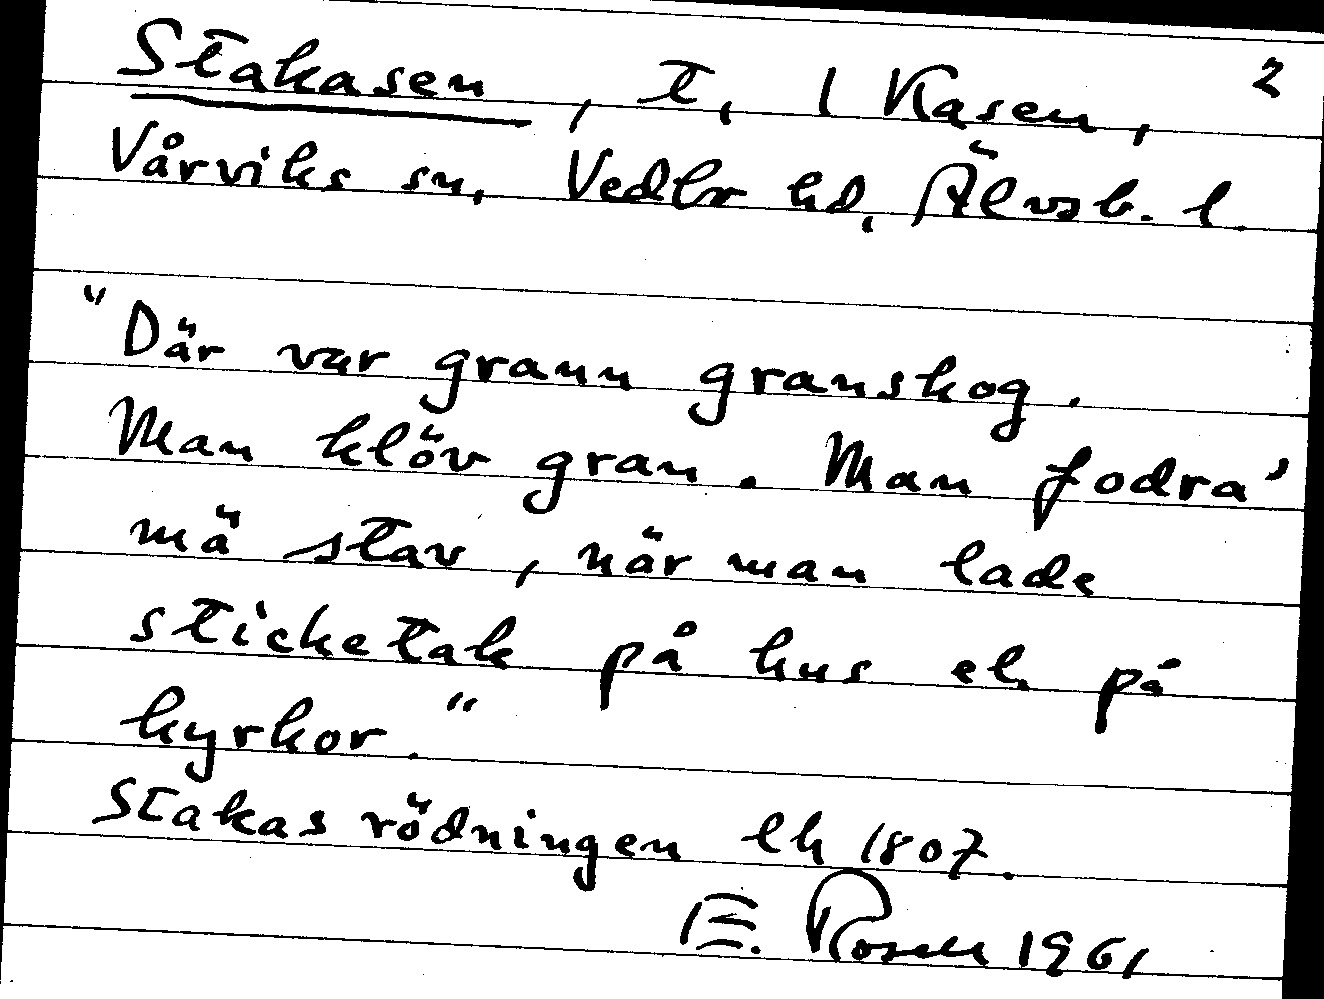 Stakasen, t. 1 Kasen, 2
Vårviks sn, Vedbr hd, Älvsb. l.
"Där var grann granskog.
Man klöv gran. Man fodra'
mä stav, när man lade
sticketak på hus el. på
kyrkor."
Stakasrödningen lh 1807.
E. Rosell 1961